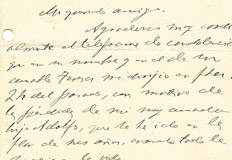 Mi querido amigo:
Agradezco muy cordi
almente el telegrama de condolencia
que en su nombre y en el de su
amable me dirigió en fha.
24 del pasado, con motivo de
la pérdida de mi muy amado
hijo Adolfo, que se ha ido en la
flor de sus años, cuando todo le
la vida